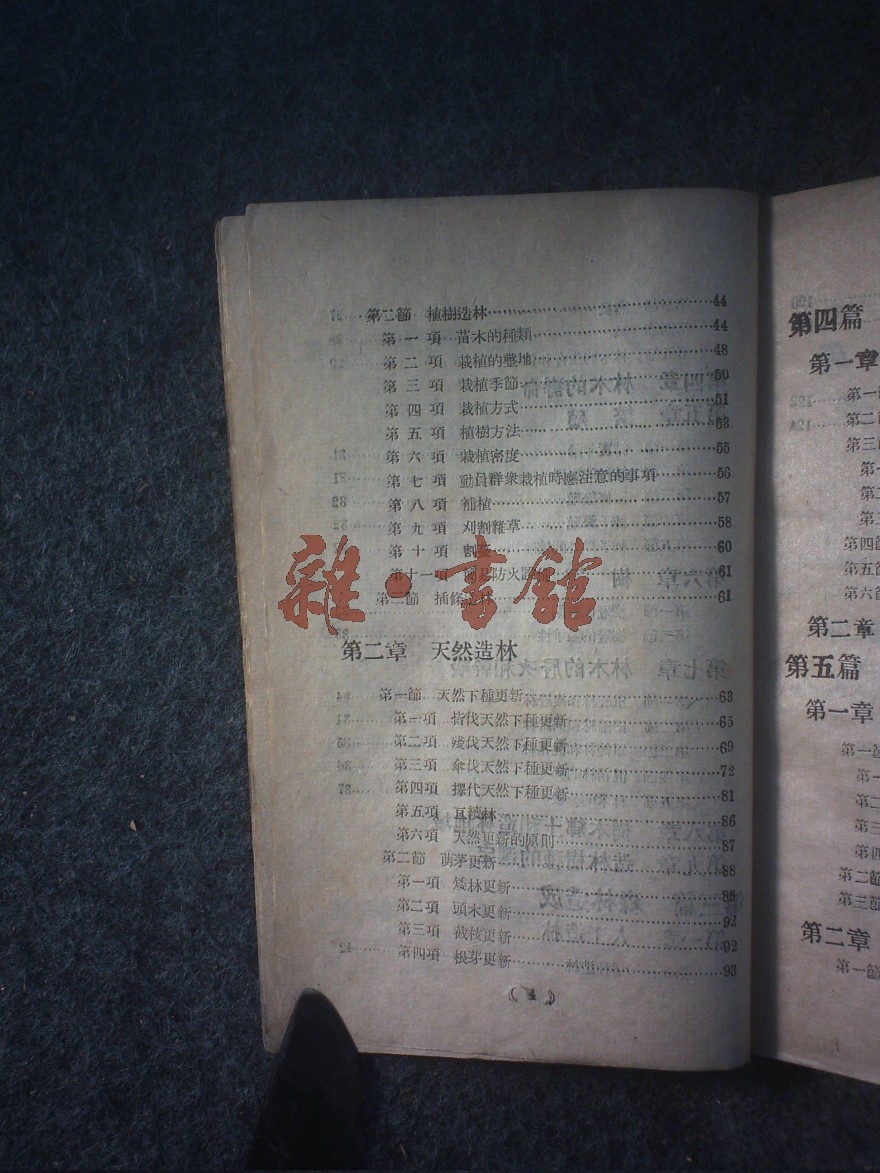 第二節 植樹造林 44
第一項 苗木的種類 44
第二項 栽植的整地 48
第三項 栽植季節 50
第四項 栽植方式 51
第五項 植樹方法 53
第六項 栽植密度 55
第七項 動員群衆栽植時應注意的事項 56
第八項 補植 57
第九項 刈割雜草 58
第十項 割 60
第十一項 防火 61
第三節 插條造林 61
雜·書館
第二章 天然造林
第一節 天然下種更新 63
第一項 皆伐天然下種更新 65
第二項 殘伐天然下種更新 69
第三項 傘伐天然下種更新 72
第四項 擇伐天然下種更新 81
第五項 亘續林 86
第六項 天然更新的原則 87
第二節 萌芽更新 88
第一項 矮林更新 88
第二項 頭木更新 92
第三項 截枝更新 92
第四項 根芽更新 93
第四篇
第一章
第一
第二節
第三節
第一
第二
第三
第四節
第五節
第六節
第二章
第五篇
第一章
第一節
第一
第二
第三
第四
第二節
第三節
第二章
第一節